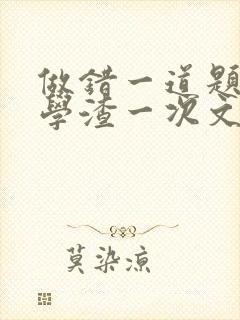 做錯一道題
學渣一次文
莫染涼